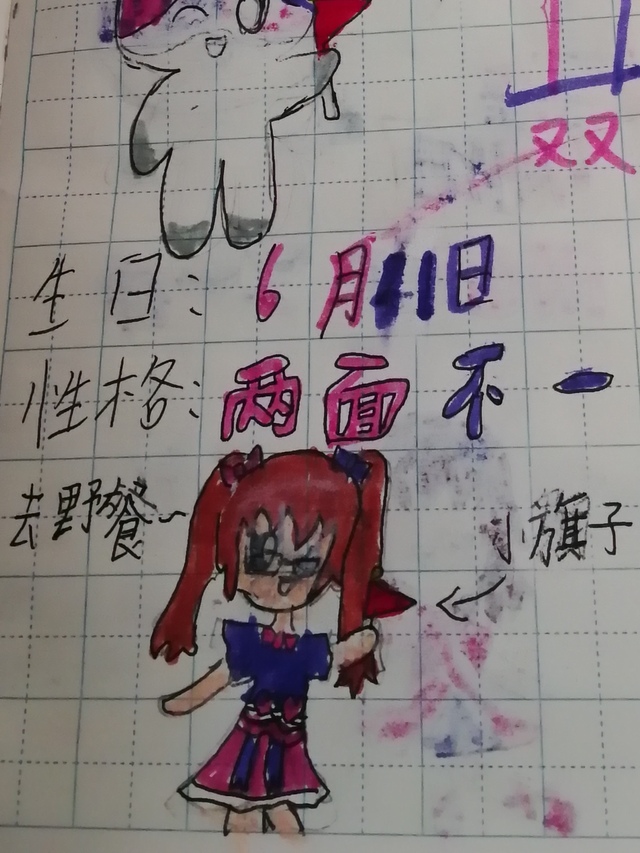 双双
生日：6月11日
性格：两面不一
去野餐~
小旗子